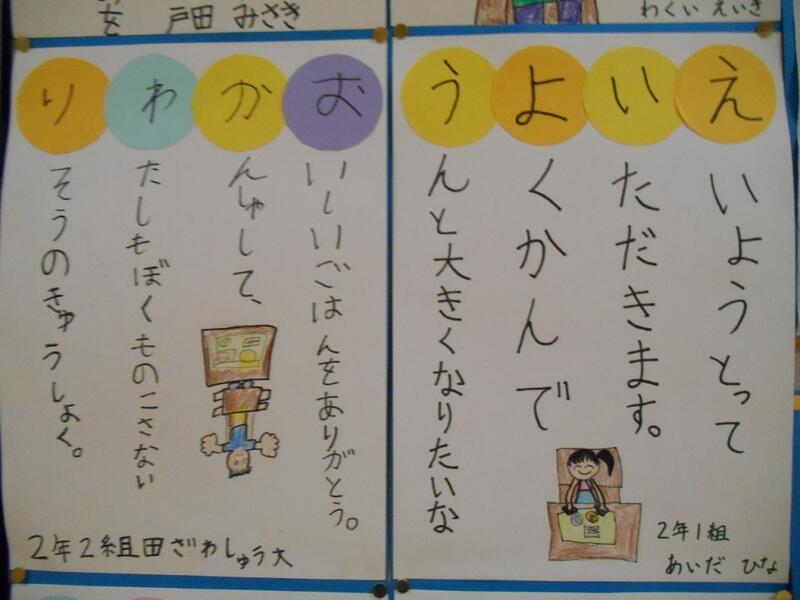 を
戸田 みさき
わくい えいき
えいようとって
いただきます。
よくかんで
うんと大きくなりたいな
2年1組
あいだ ひな
おいしいごはんをありがとう。
かんしゃして、
わたしもぼくものこさない
りそうのきゅうしょく。
2年2組田ざわしゅう大